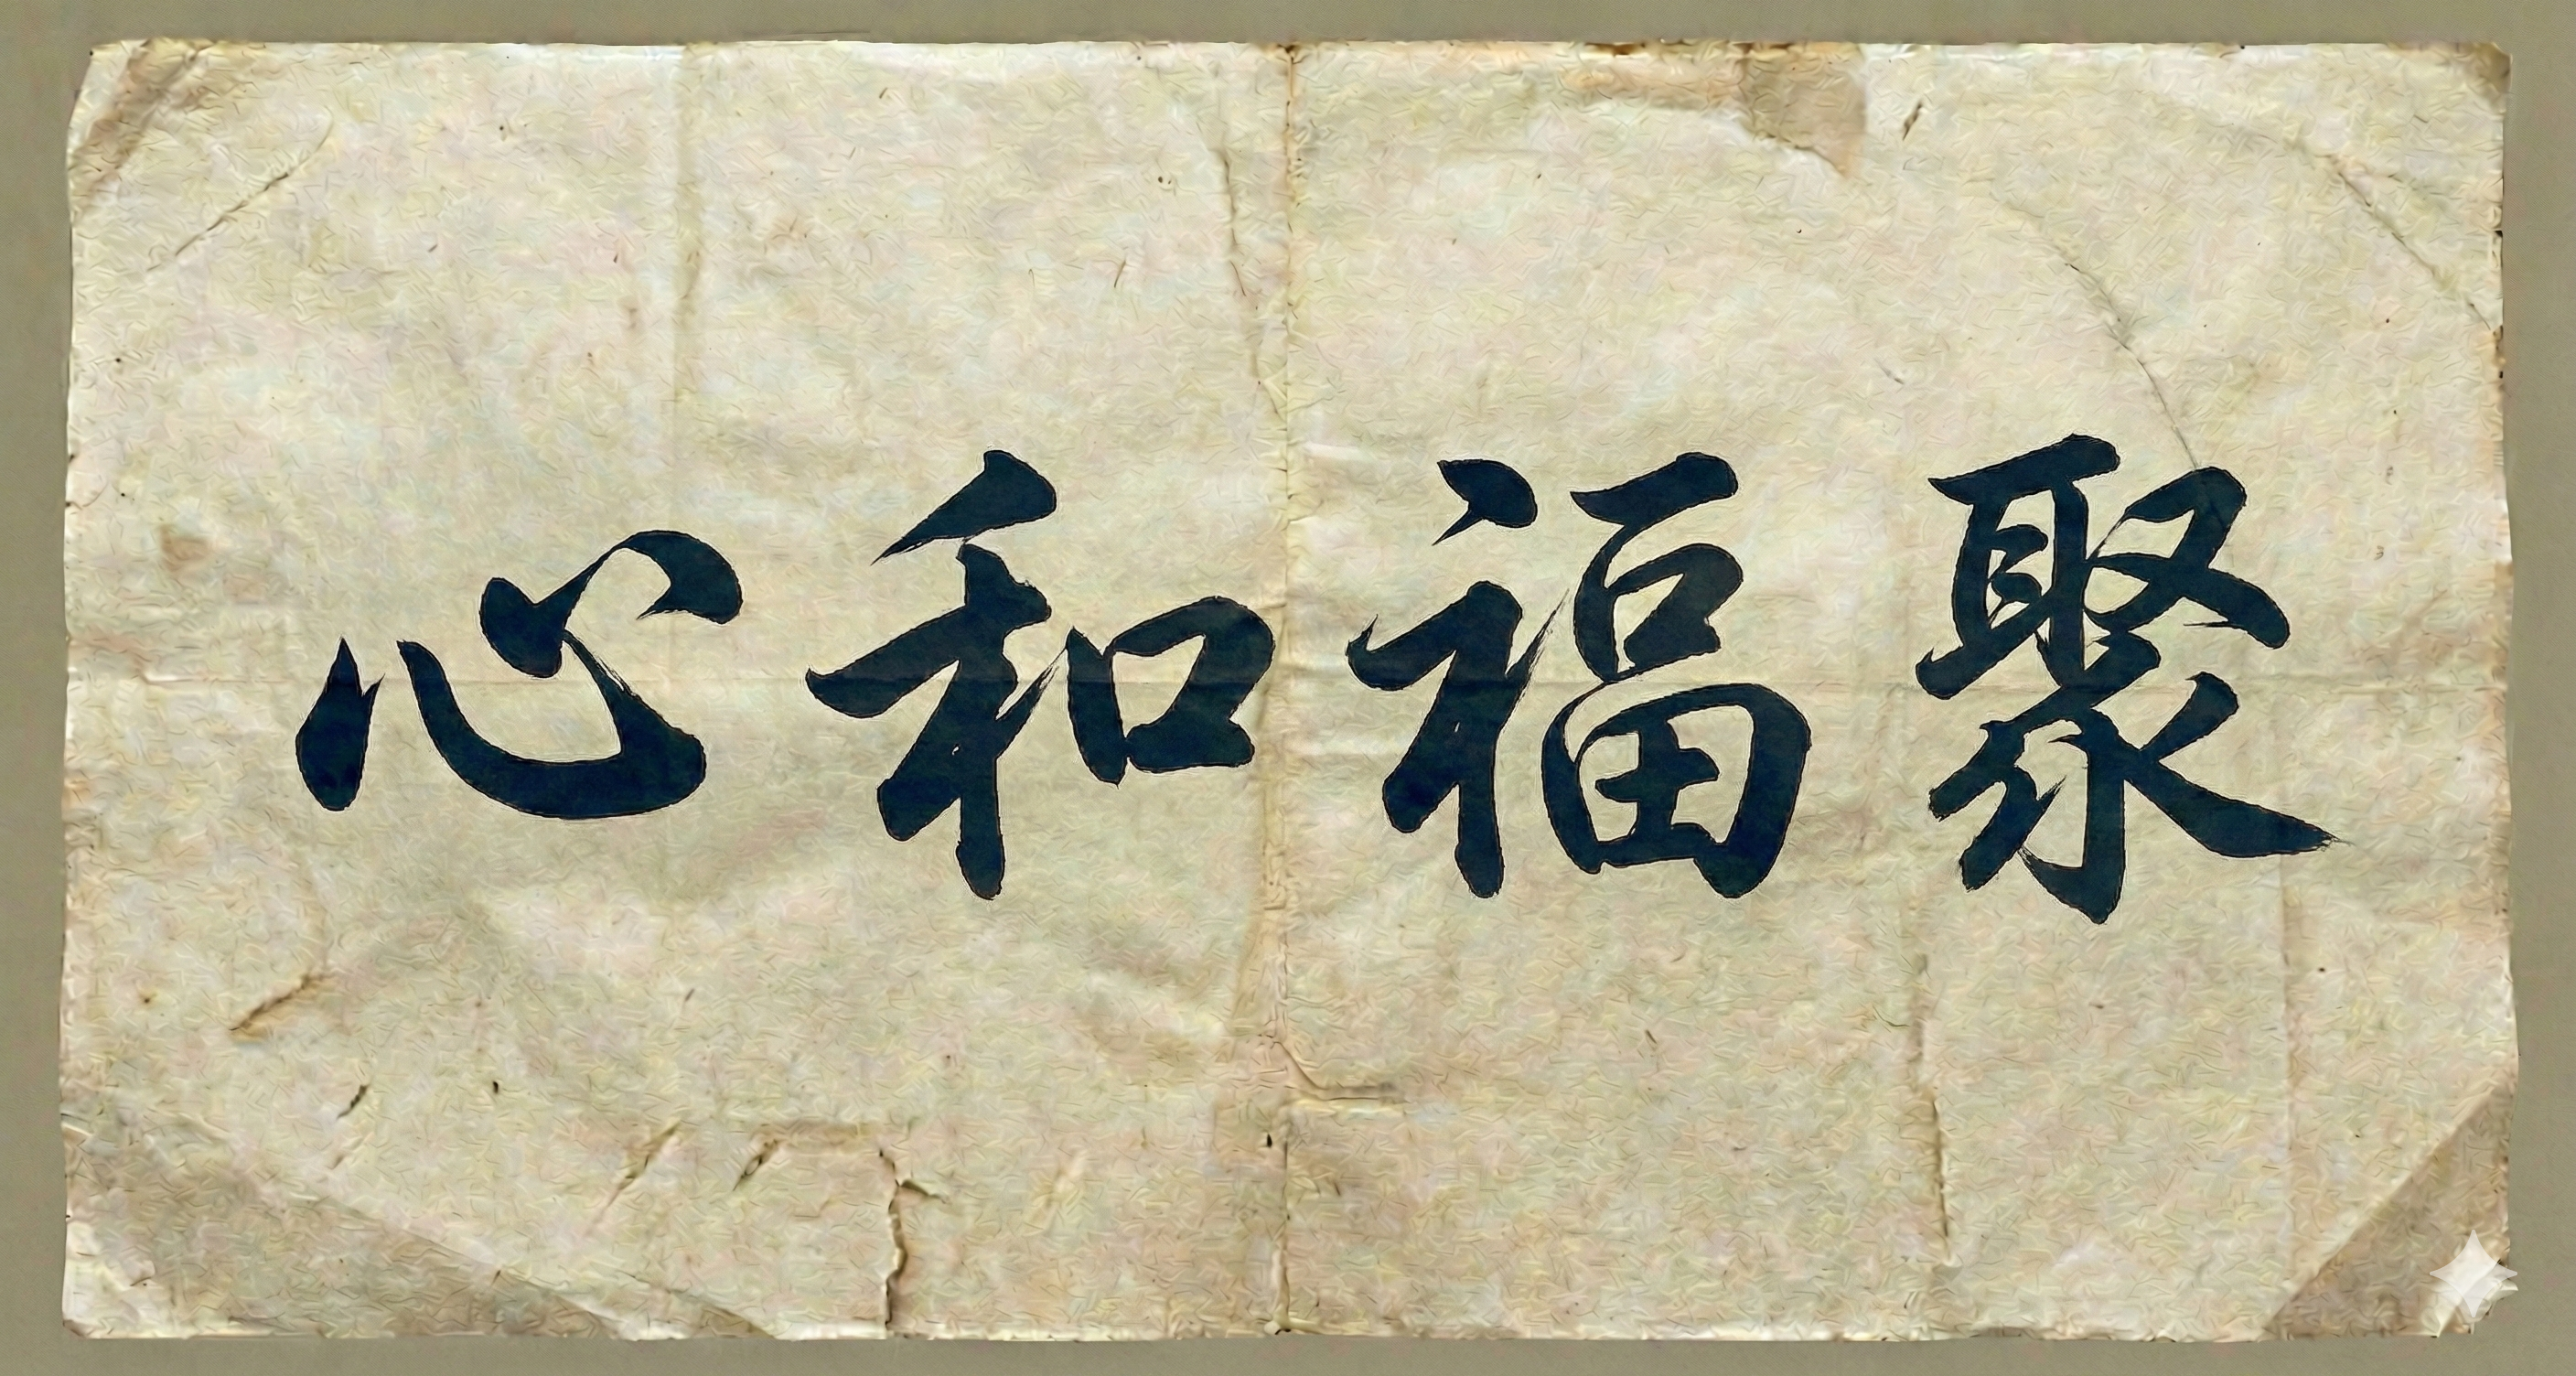 心和福聚